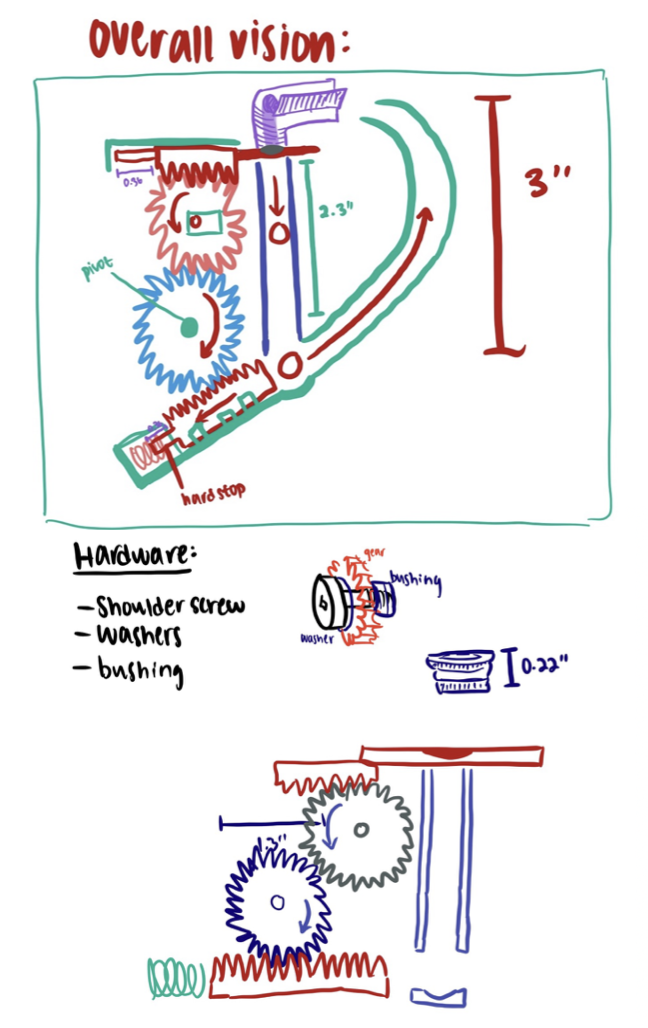 overall vision:
0.36
2.3"
3"
pivot
hard stop
Hardware:
- Shoulder screw
- washers
- bushing
gear
bushing
washer
0.22"
1.3"